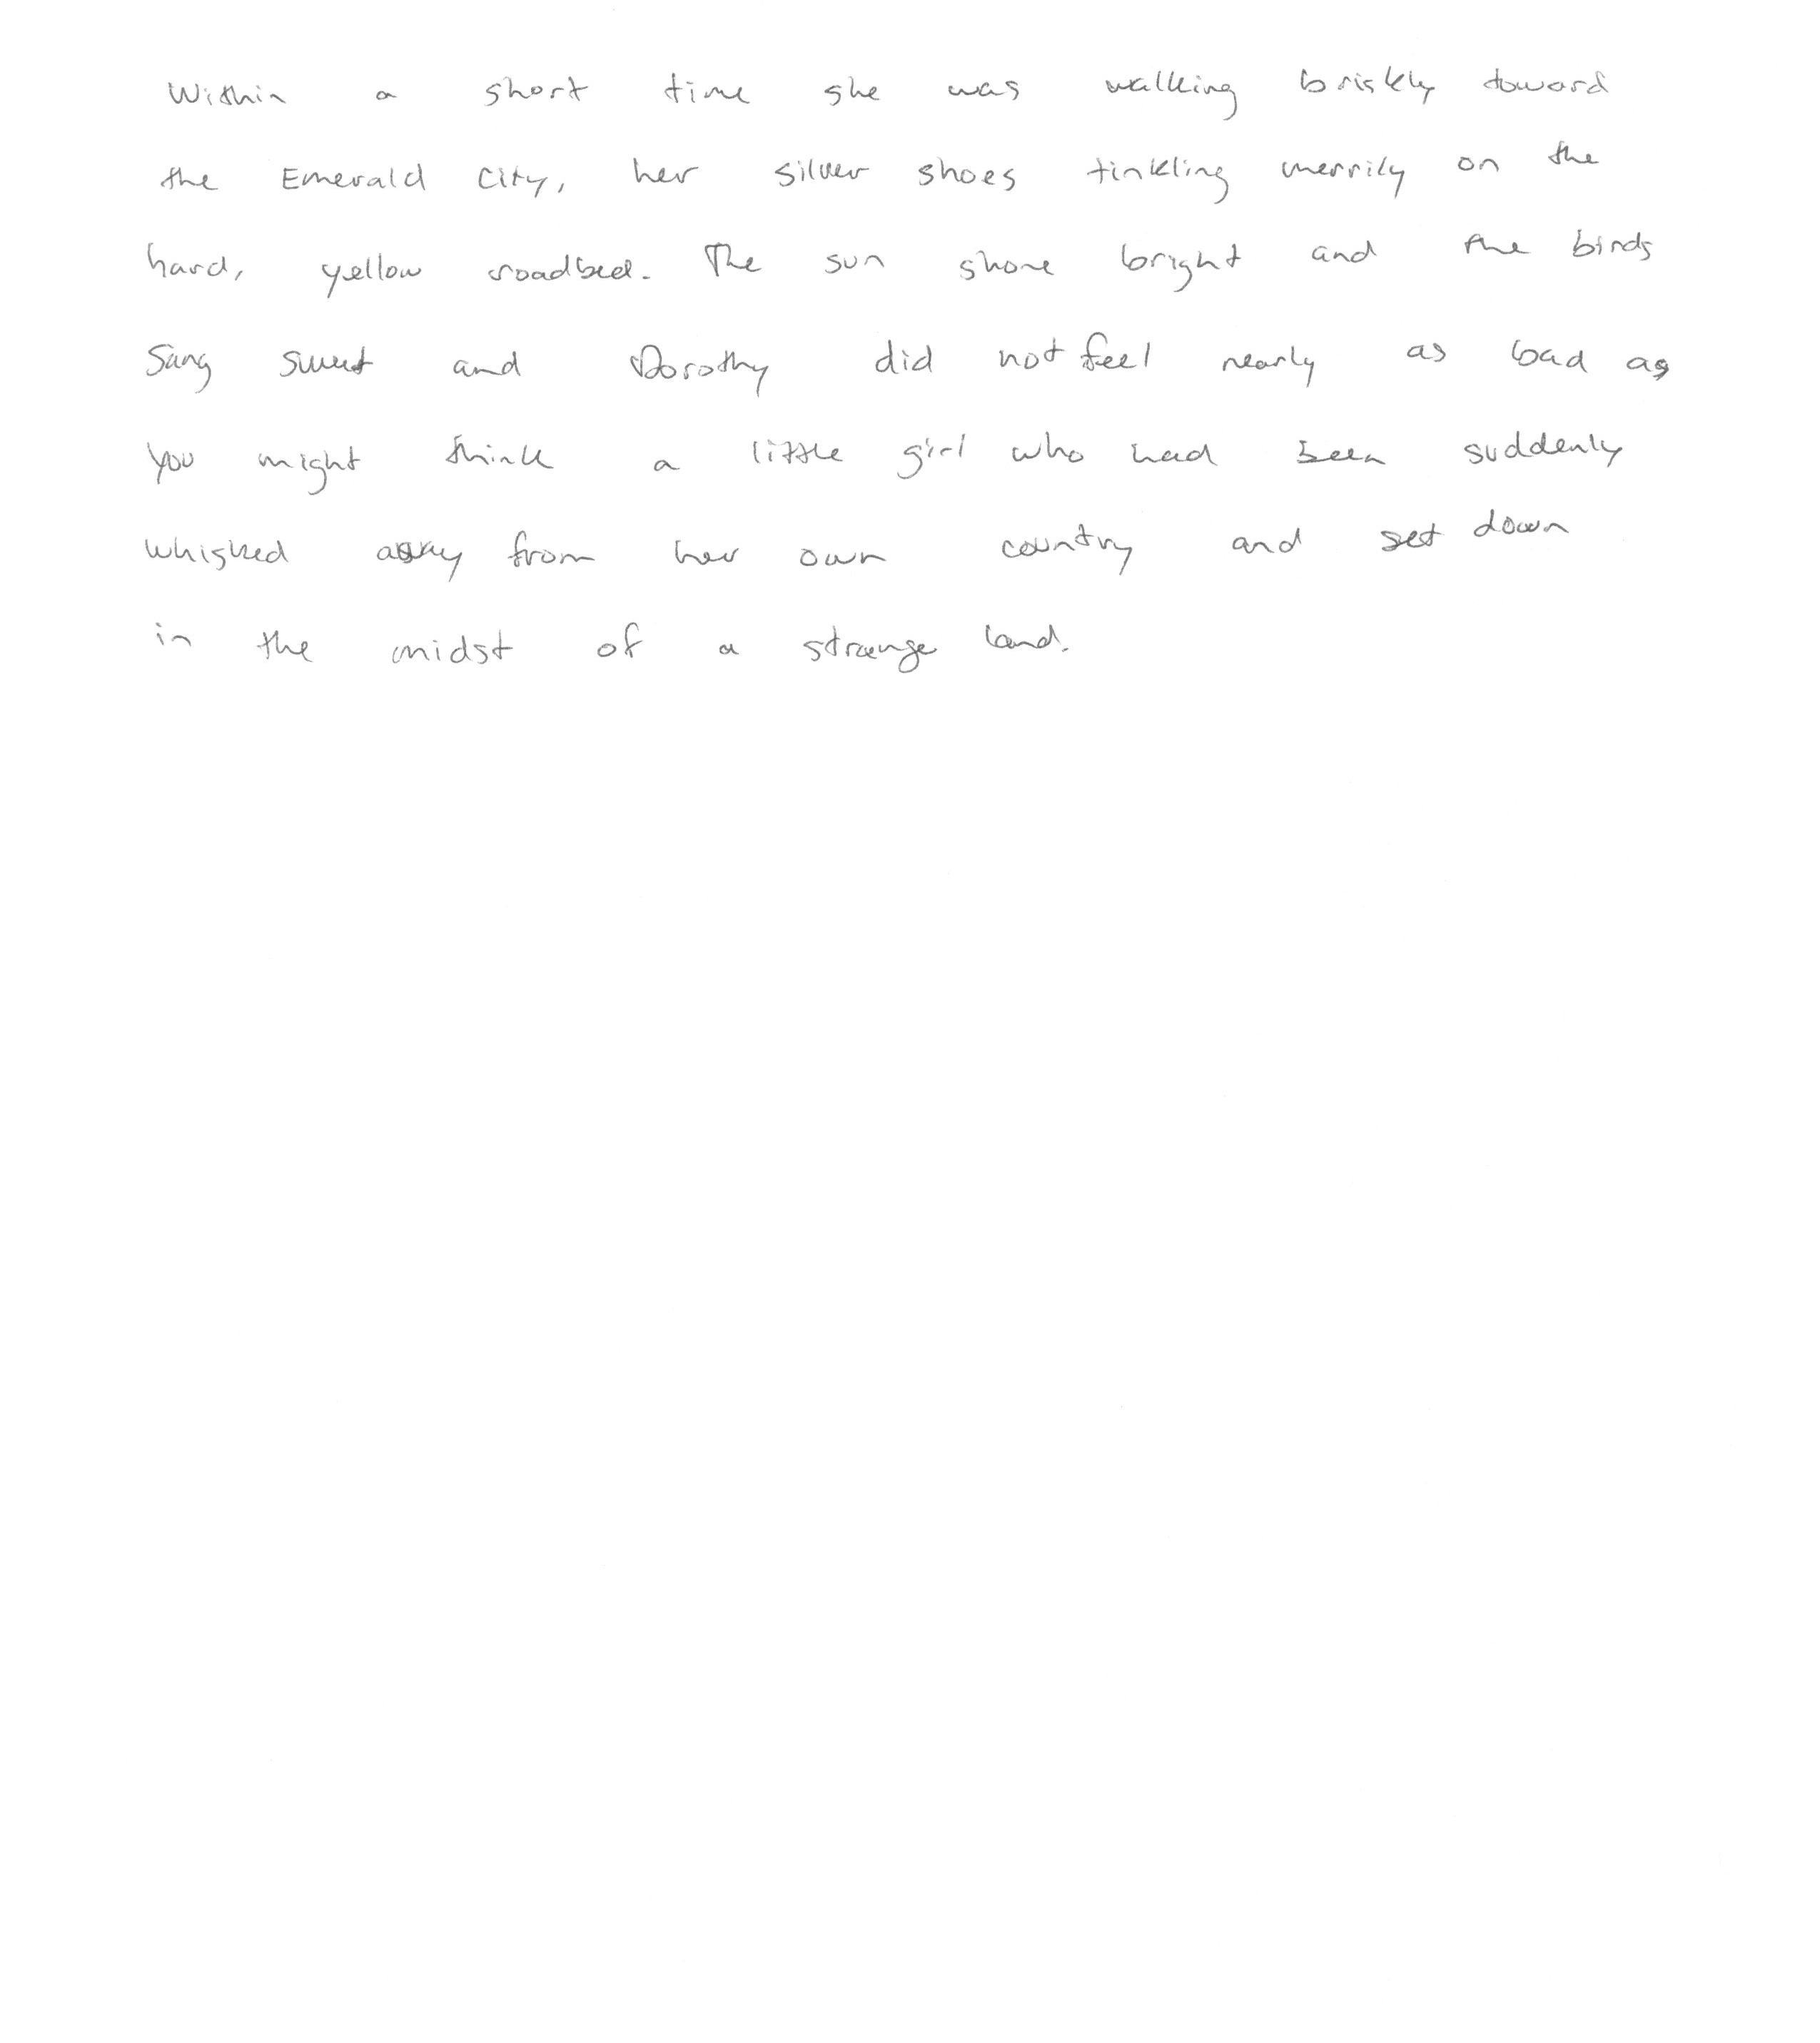 Within a short time she was walking briskly toward
the Emerald City, her silver shoes tinkling merrily on the
hard, yellow roadbed. The sun shone bright and the birds
sang sweet and Dorothy did not feel nearly as bad as
you might think a little girl who had been suddenly
whisked away from her own country and set down
in the midst of a strange land.